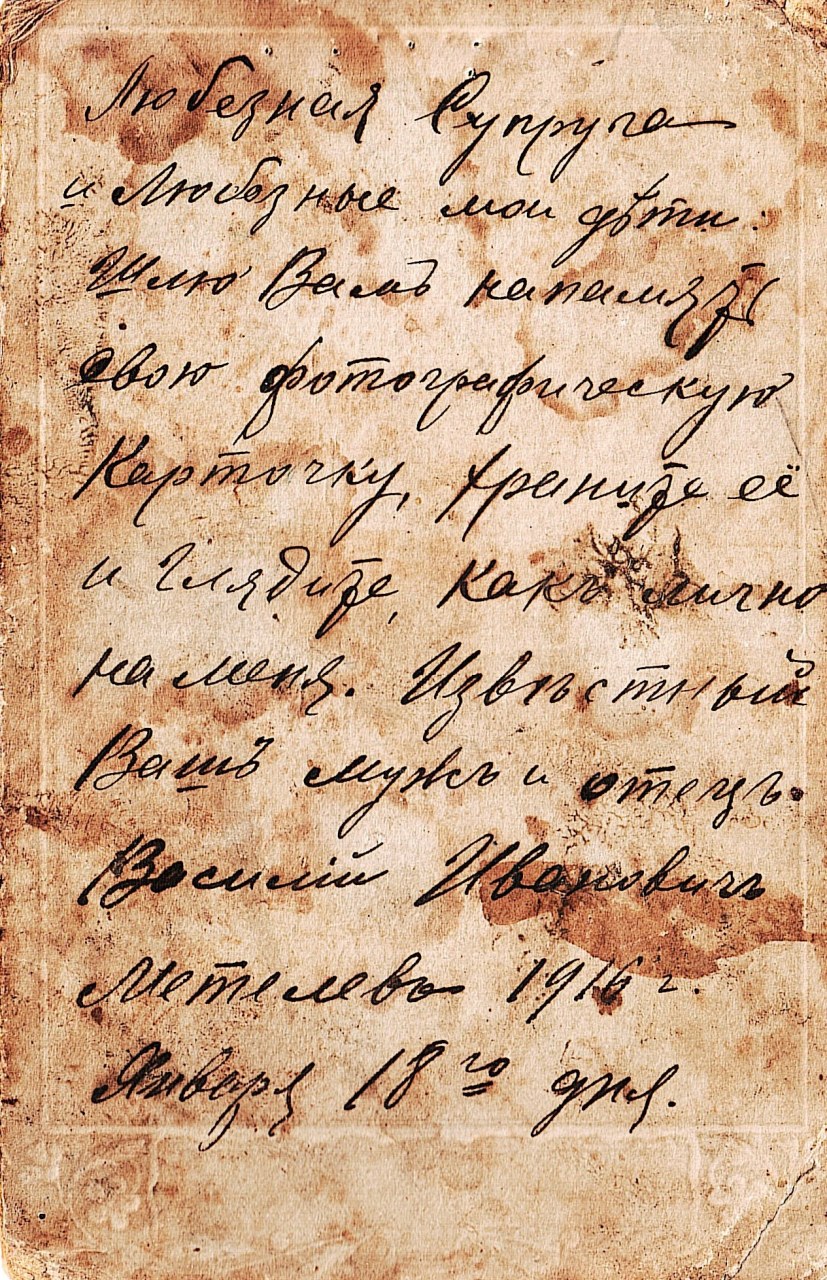 Любезная Супруга
и Любезные мои дѣти:
Шлю Вамъ напамять
свою фотографическую
Карточку, храните её
и глядите, какъ лично
на меня. Извѣстный
Вашъ мужъ и отецъ.
Василій Ивановичъ
Метелевъ 1916 г.
Января 18го дня.